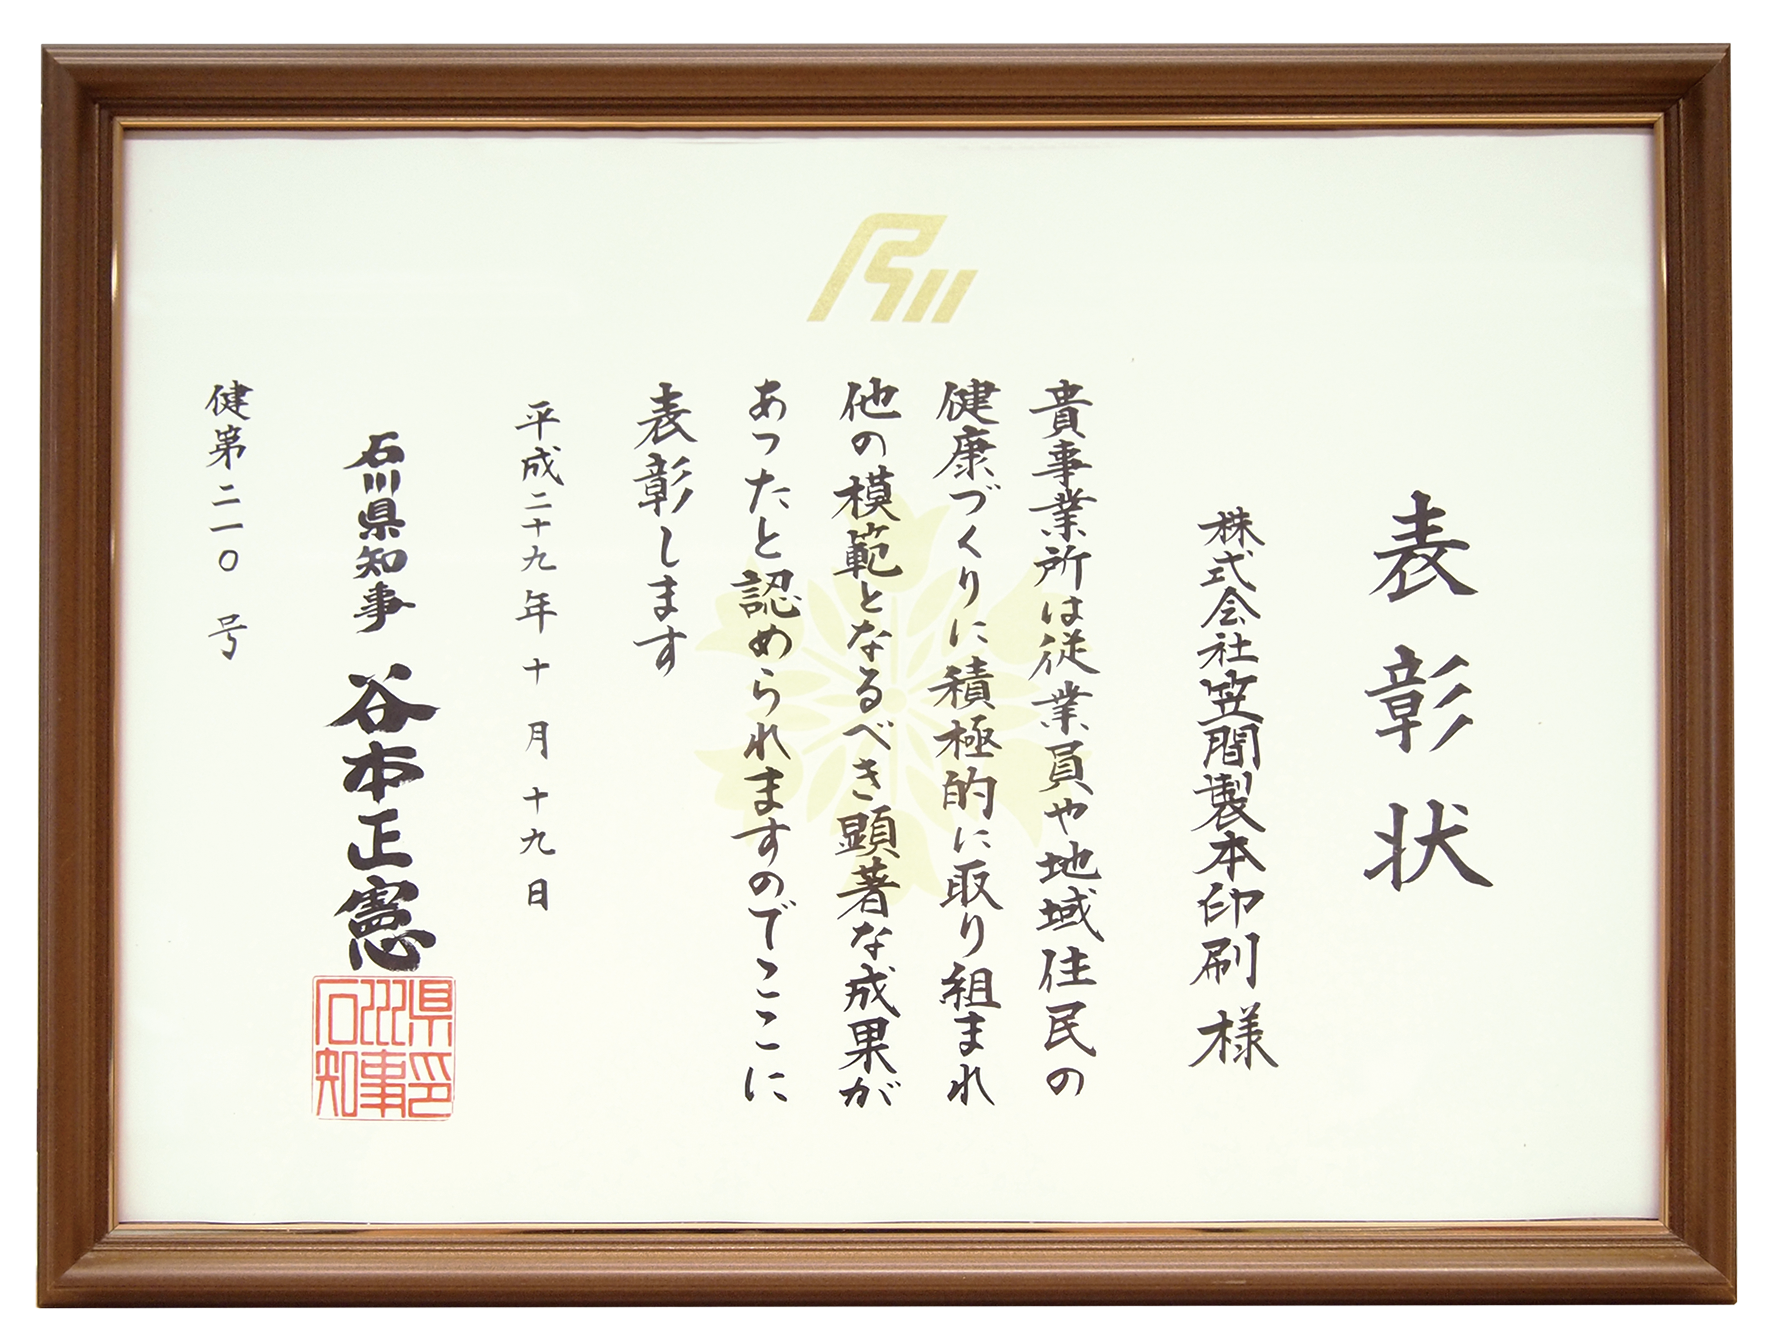 表彰状
株式会社笠間製本印刷 様
貴事業所は従業員や地域住民の
健康づくりに積極的に取り組まれ
他の模範となるべき顕著な成果が
あったと認められますのでここに
表彰します
平成二十九年十月十九日
石川県知事 谷本正憲
県印
川事
石知
健第二一〇号